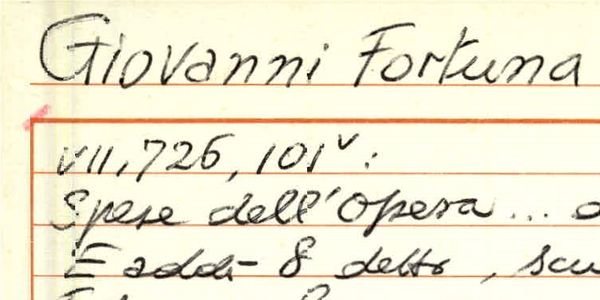 Giovanni Fortuna
VII, 726, 101v:
Spese dell'Opera ...
E addi- 8 detto, scu